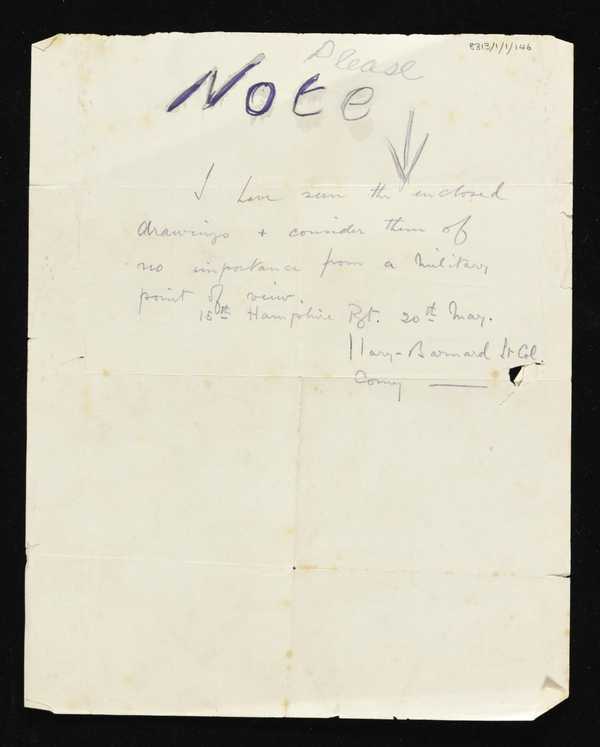 8313/1/1/146
Please
Note
I have seen the enclosed
drawings + consider them of
no importance from a military
point of view.
15th Hampshire Rgt. 20th May.
Cary-Barnard Lt Col.
Comg